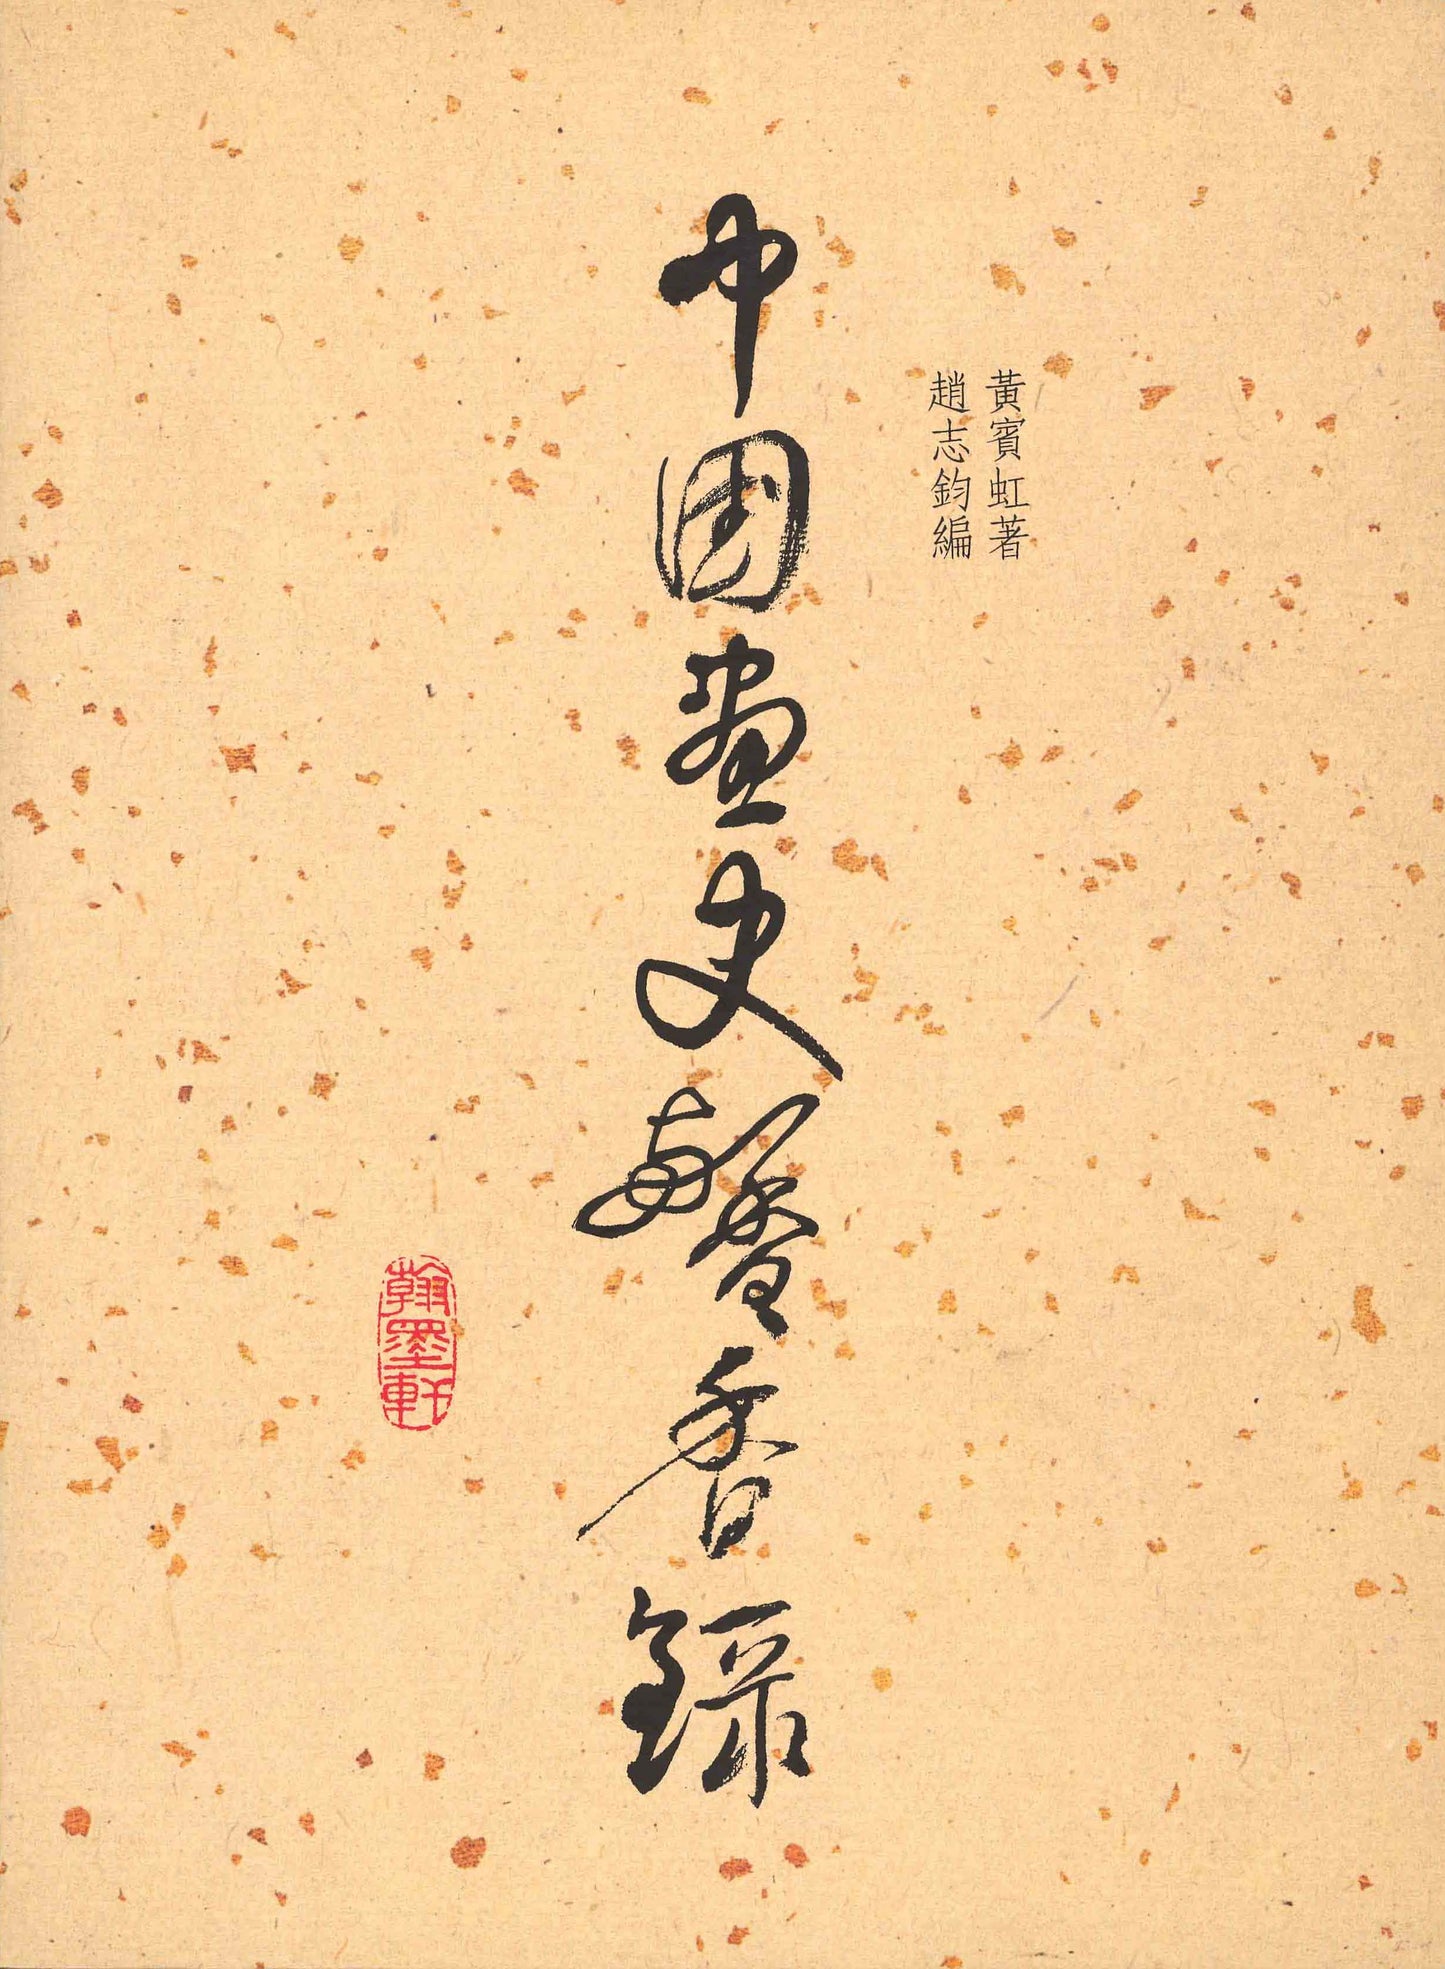 黃賓虹著
趙志鈞編
中国画史馨香録
翰墨軒